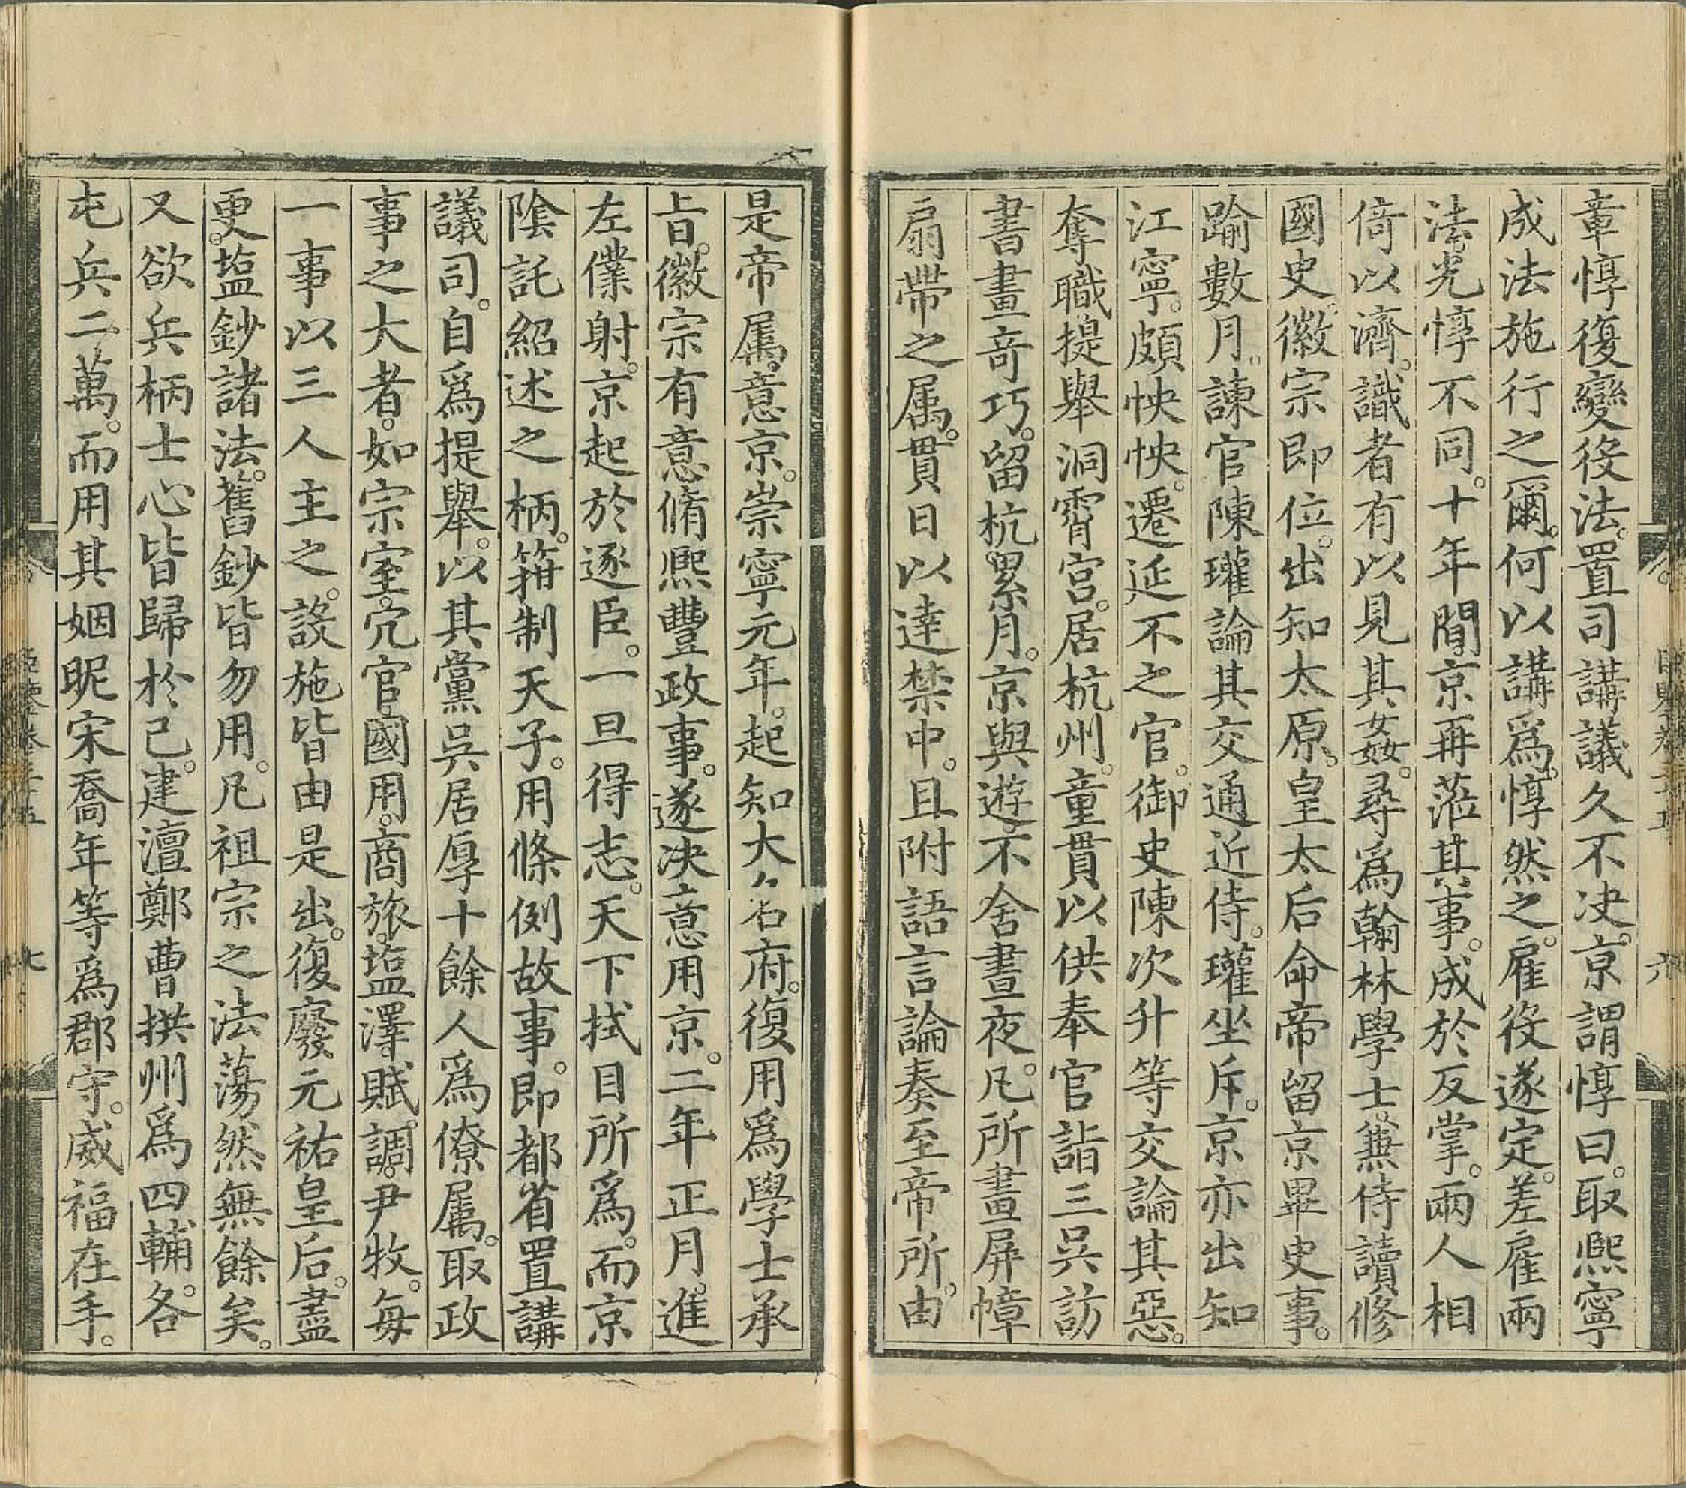 章惇復變役法。置司講議久不决。京謂惇曰。取熙寧
成法施行之爾。何以講爲。惇然之。雇役遂定。差雇兩
法。光惇不同。十年間京再蒞其事。成於反掌。兩人相
倚以濟。識者有以見其姦。尋爲翰林學士。兼侍讀修
國史。徽宗即位。出知太原。皇太后命帝留京畢史事。
踰數月。諫官陳瓘論其交通近侍。瓘坐斥。京亦出知
江寧。頗怏怏。遷延不之官。御史陳次升等交論其惡。
奪職提舉洞霄宮。居杭州。童貫以供奉官詣三吳訪
書畫奇巧。留杭。累月。京與遊。不舍晝夜。凡所畫屏幛
扇帶之属。貫日以達禁中。且附語言論奏至帝所。由
是帝属意京。崇寧元年。起知大名府。復用爲學士承
旨。徽宗有意脩熙豐政事。遂决意用京。二年正月。進
左僕射。京起於逐臣。一旦得志。天下拭目所爲。而京
陰託紹述之柄。箝制天子。用條例故事。即都省置講
議司。自爲提舉。以其黨吳居厚十餘人爲僚属。取政
事之大者。如宗室。冗官。國用。商旅。塩澤。賦調。尹牧。每
一事以三人主之。設施皆由是出。復廢元祐皇后。盡
更。塩鈔諸法。舊鈔皆勿用。凡祖宗之法蕩然無餘矣。
又欲兵柄士心皆歸於己。建澶鄭曹拱州爲四輔。各
屯兵二萬。而用其姻昵宋喬年等爲郡守。威福在手。